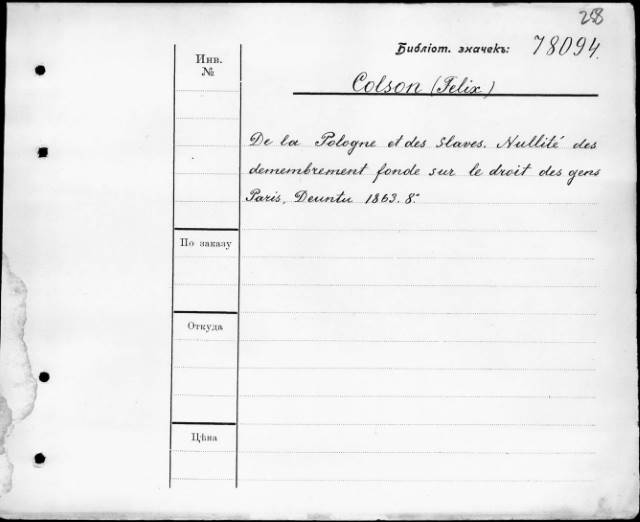 258
Библіот. значекъ: 78094.
Инв.
№
Colson (Felix)
De la Pologne et des Slaves. Nullité des
demembrement fonde sur le droit des gens
Paris, Deuntu 1863. 8.º
По заказу
Откуда
Цѣна